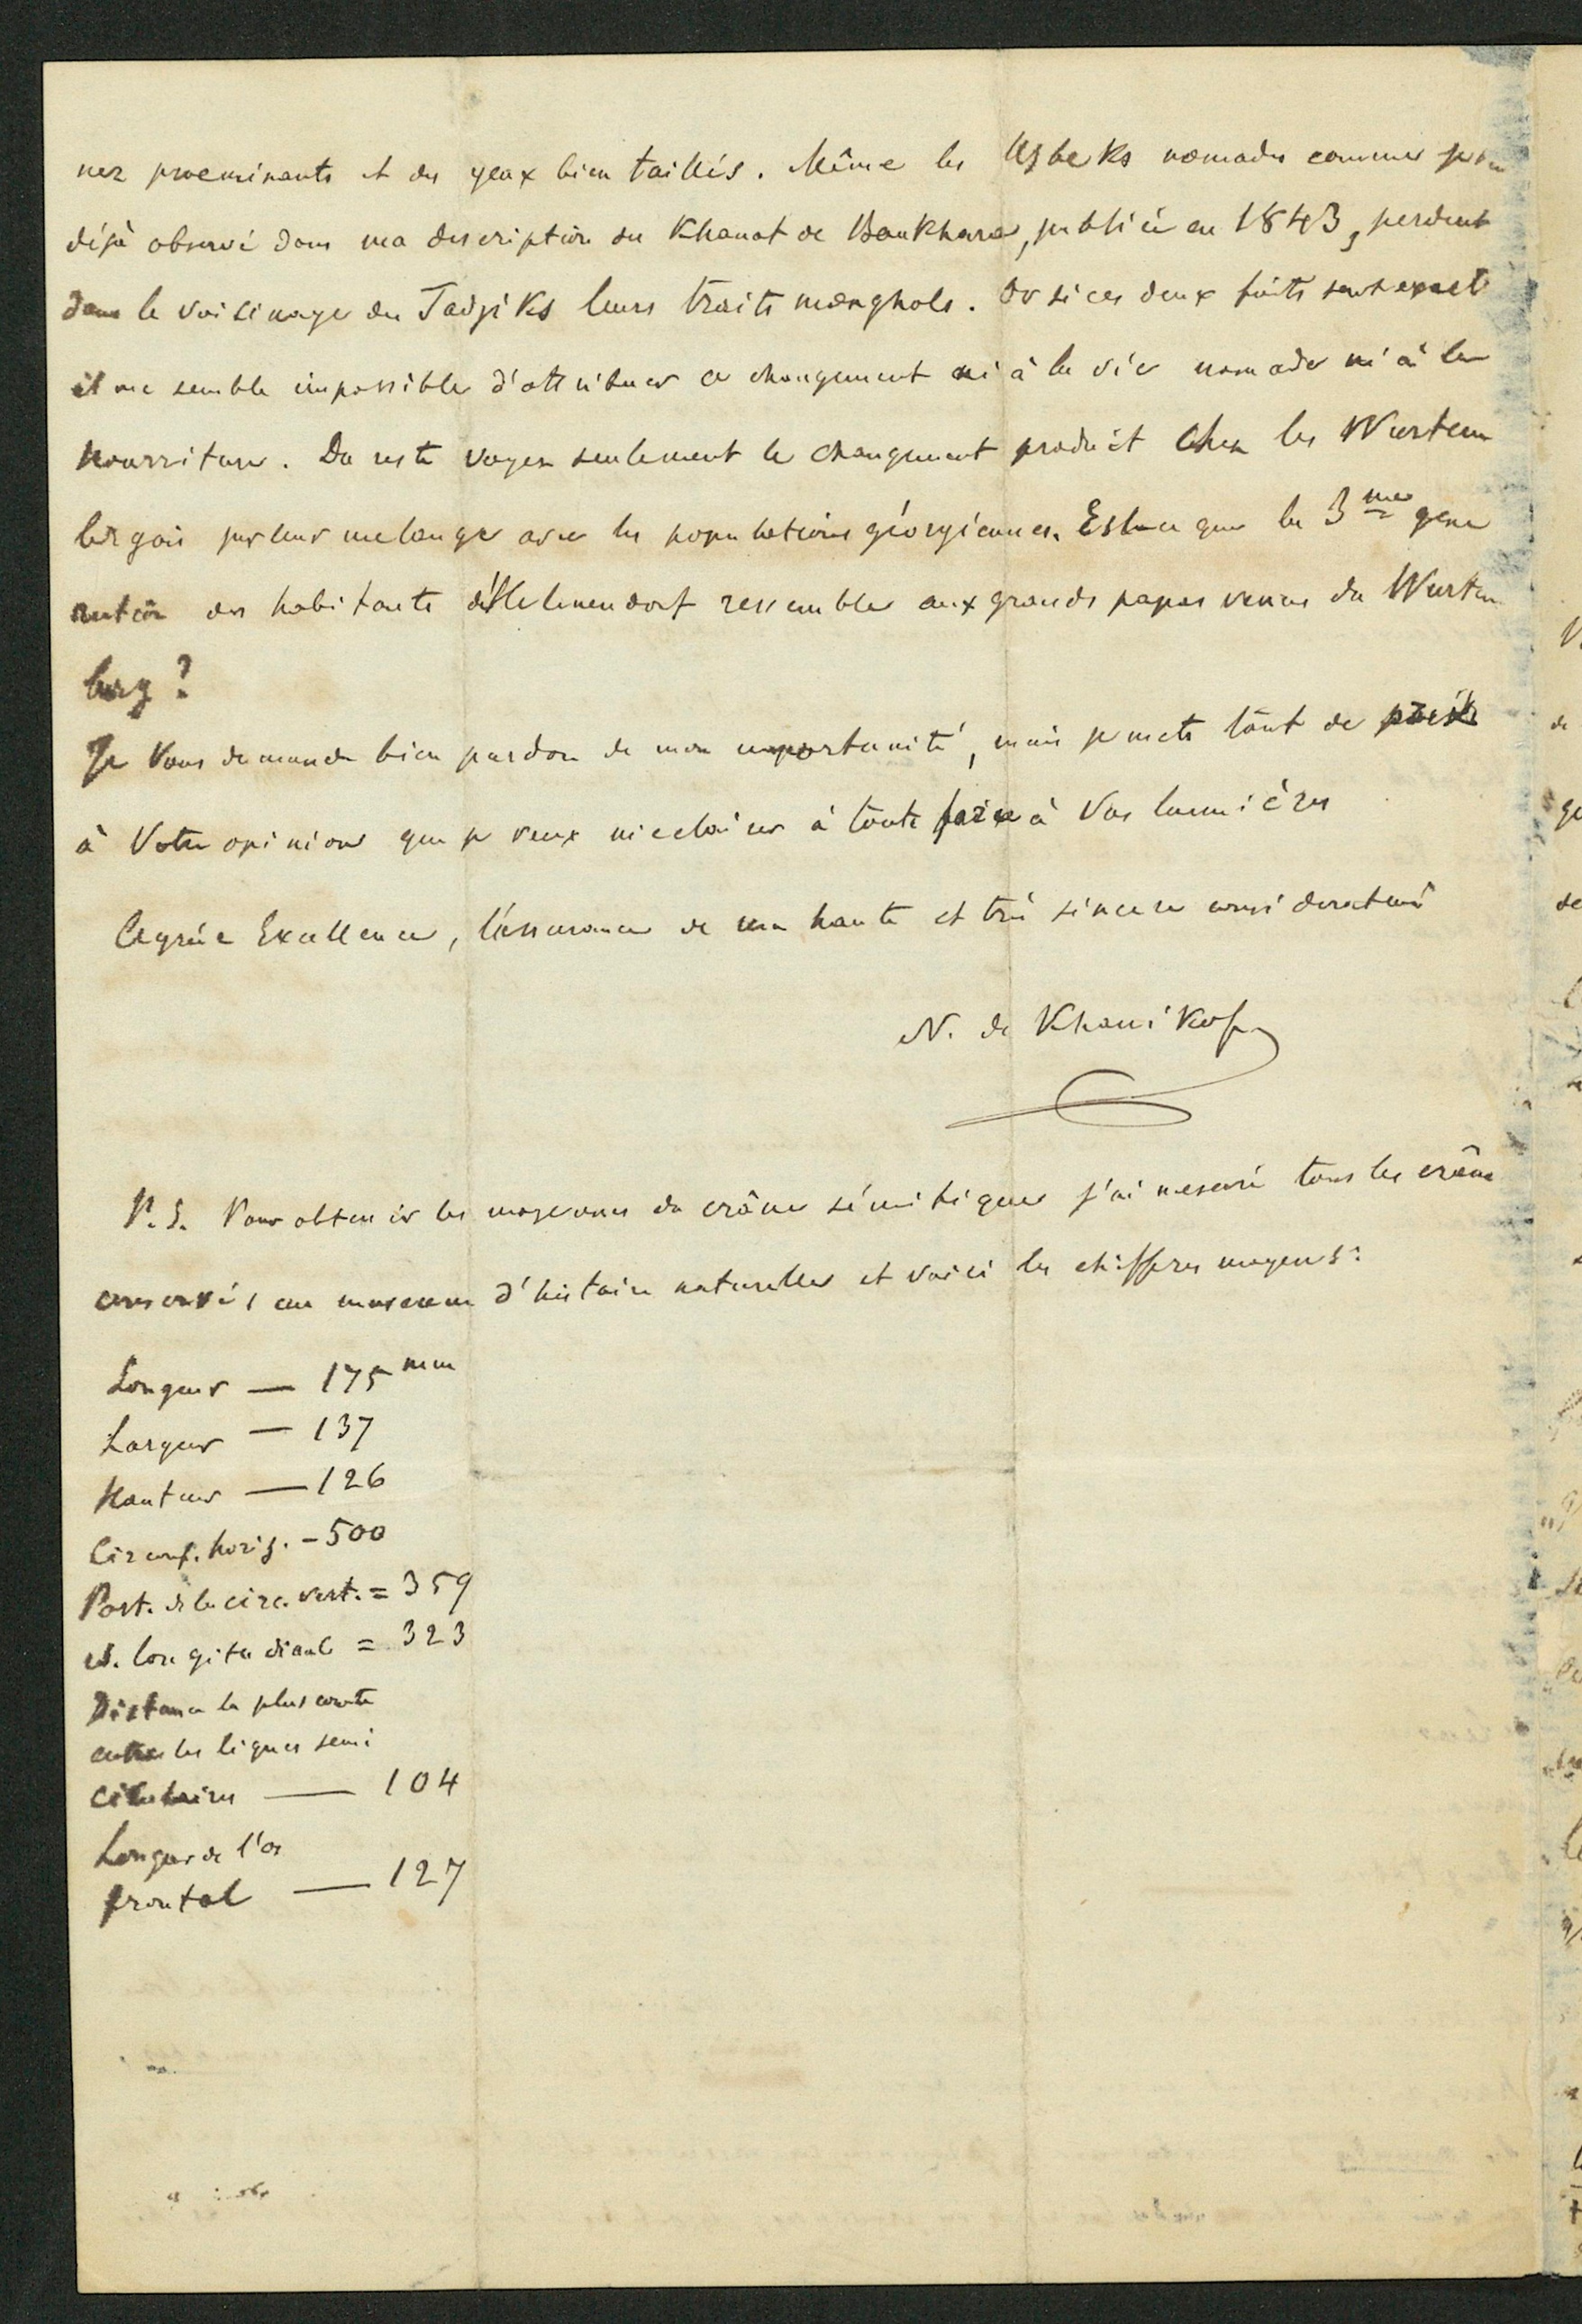 nez proeminants et des yeaux bien taillés. Même les Usbeks nomades comme je l'ai
déjà observé dans ma description du Khanat de Boukhara, publiée en 1843, perdent
dans le voisinage des Tadjiks leurs traits monghols. Or si ces deux faits sont exact
il me semble impossible d'attribuer ce changement ni à la vie nomade ni à la
nourriture. Du reste voyez seulement le changement produit chez les Wurtem
bergois par leur melange avec les populations géorgiennes. Est-ce que la 3me gene
ration des habitants d'Helenendorf ressemble aux grands papas venus du Wurtem
berg?
Je Vous demande bien pardon de mon importunité, mais je mets tant de prix
à Votre opinion que je veux m'eclairer à toute force à Vos lumières
Agréez Excellence, l'assurance de ma haute et très sincere consideration
N. de Khanikof
P. S. Pour obtenir les moyennes du crâne sémitique j'ai mesuré tous les crânes
conservés au museum d'histoire naturelle et voici les chiffres moyens:
Longeur — 175 mm
Largeur — 137
Hauteur — 126
Circonf. horiz. — 500
Part. de la circ. vert. = 359
id. longitudianle = 323
Distance la plus courte
entre les lignes semi
circulaires — 104
Longeur de l'os
frontal — 127